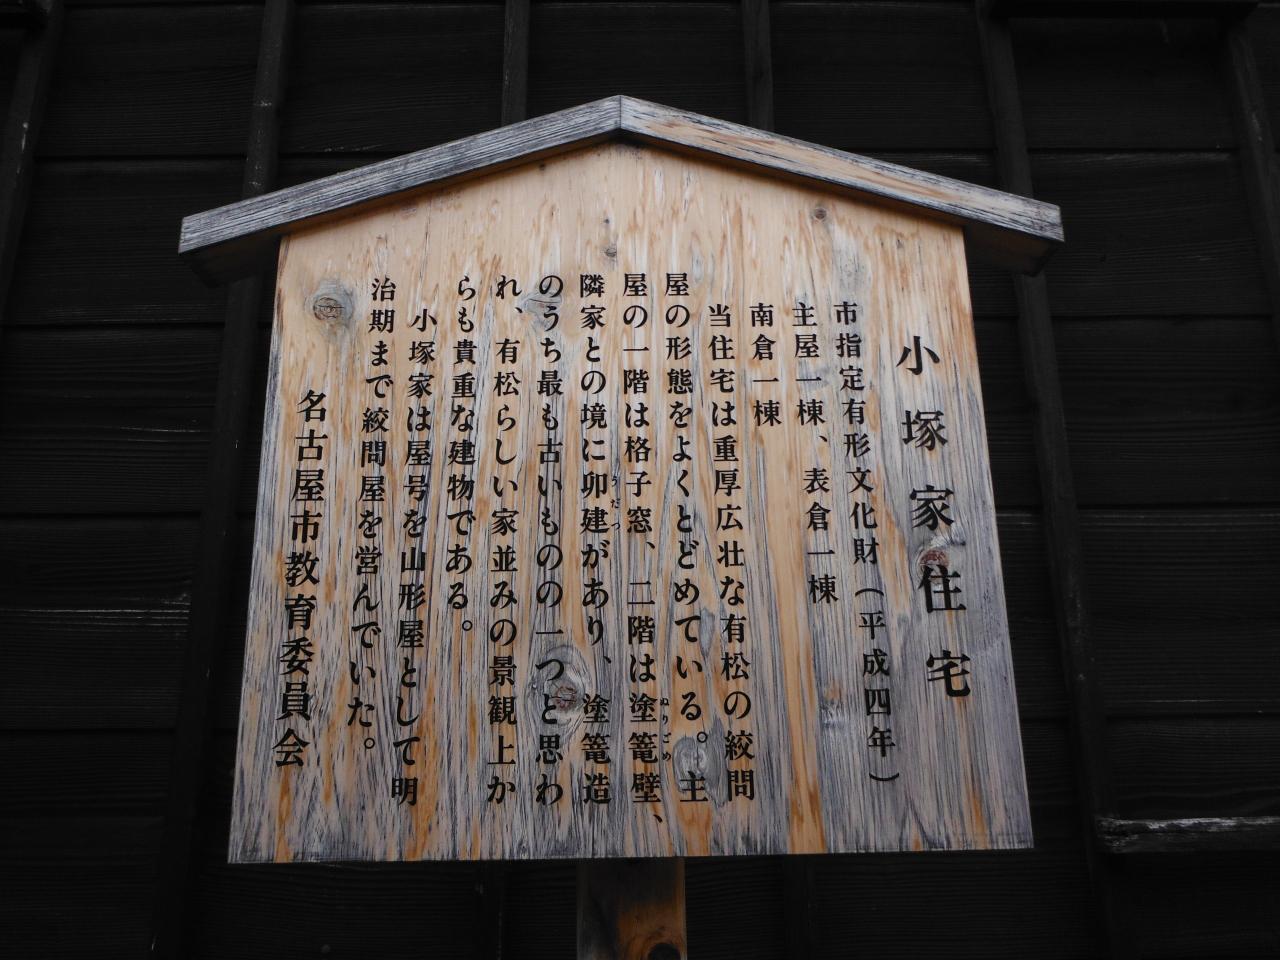 小塚家住宅
市指定有形文化財（平成四年）
主屋一棟、表倉一棟
南倉一棟
当住宅は重厚広壮な有松の絞問
屋の形態をよくとどめている。主
屋の一階は格子窓、二階は塗篭壁、
ぬりごめ
隣家との境に卯建があり、塗篭造
うだつ
のうち最も古いものの一つと思わ
れ、有松らしい家並みの景観上か
らも貴重な建物である。
小塚家は屋号を山形屋として明
治期まで絞問屋を営んでいた。
名古屋市教育委員会